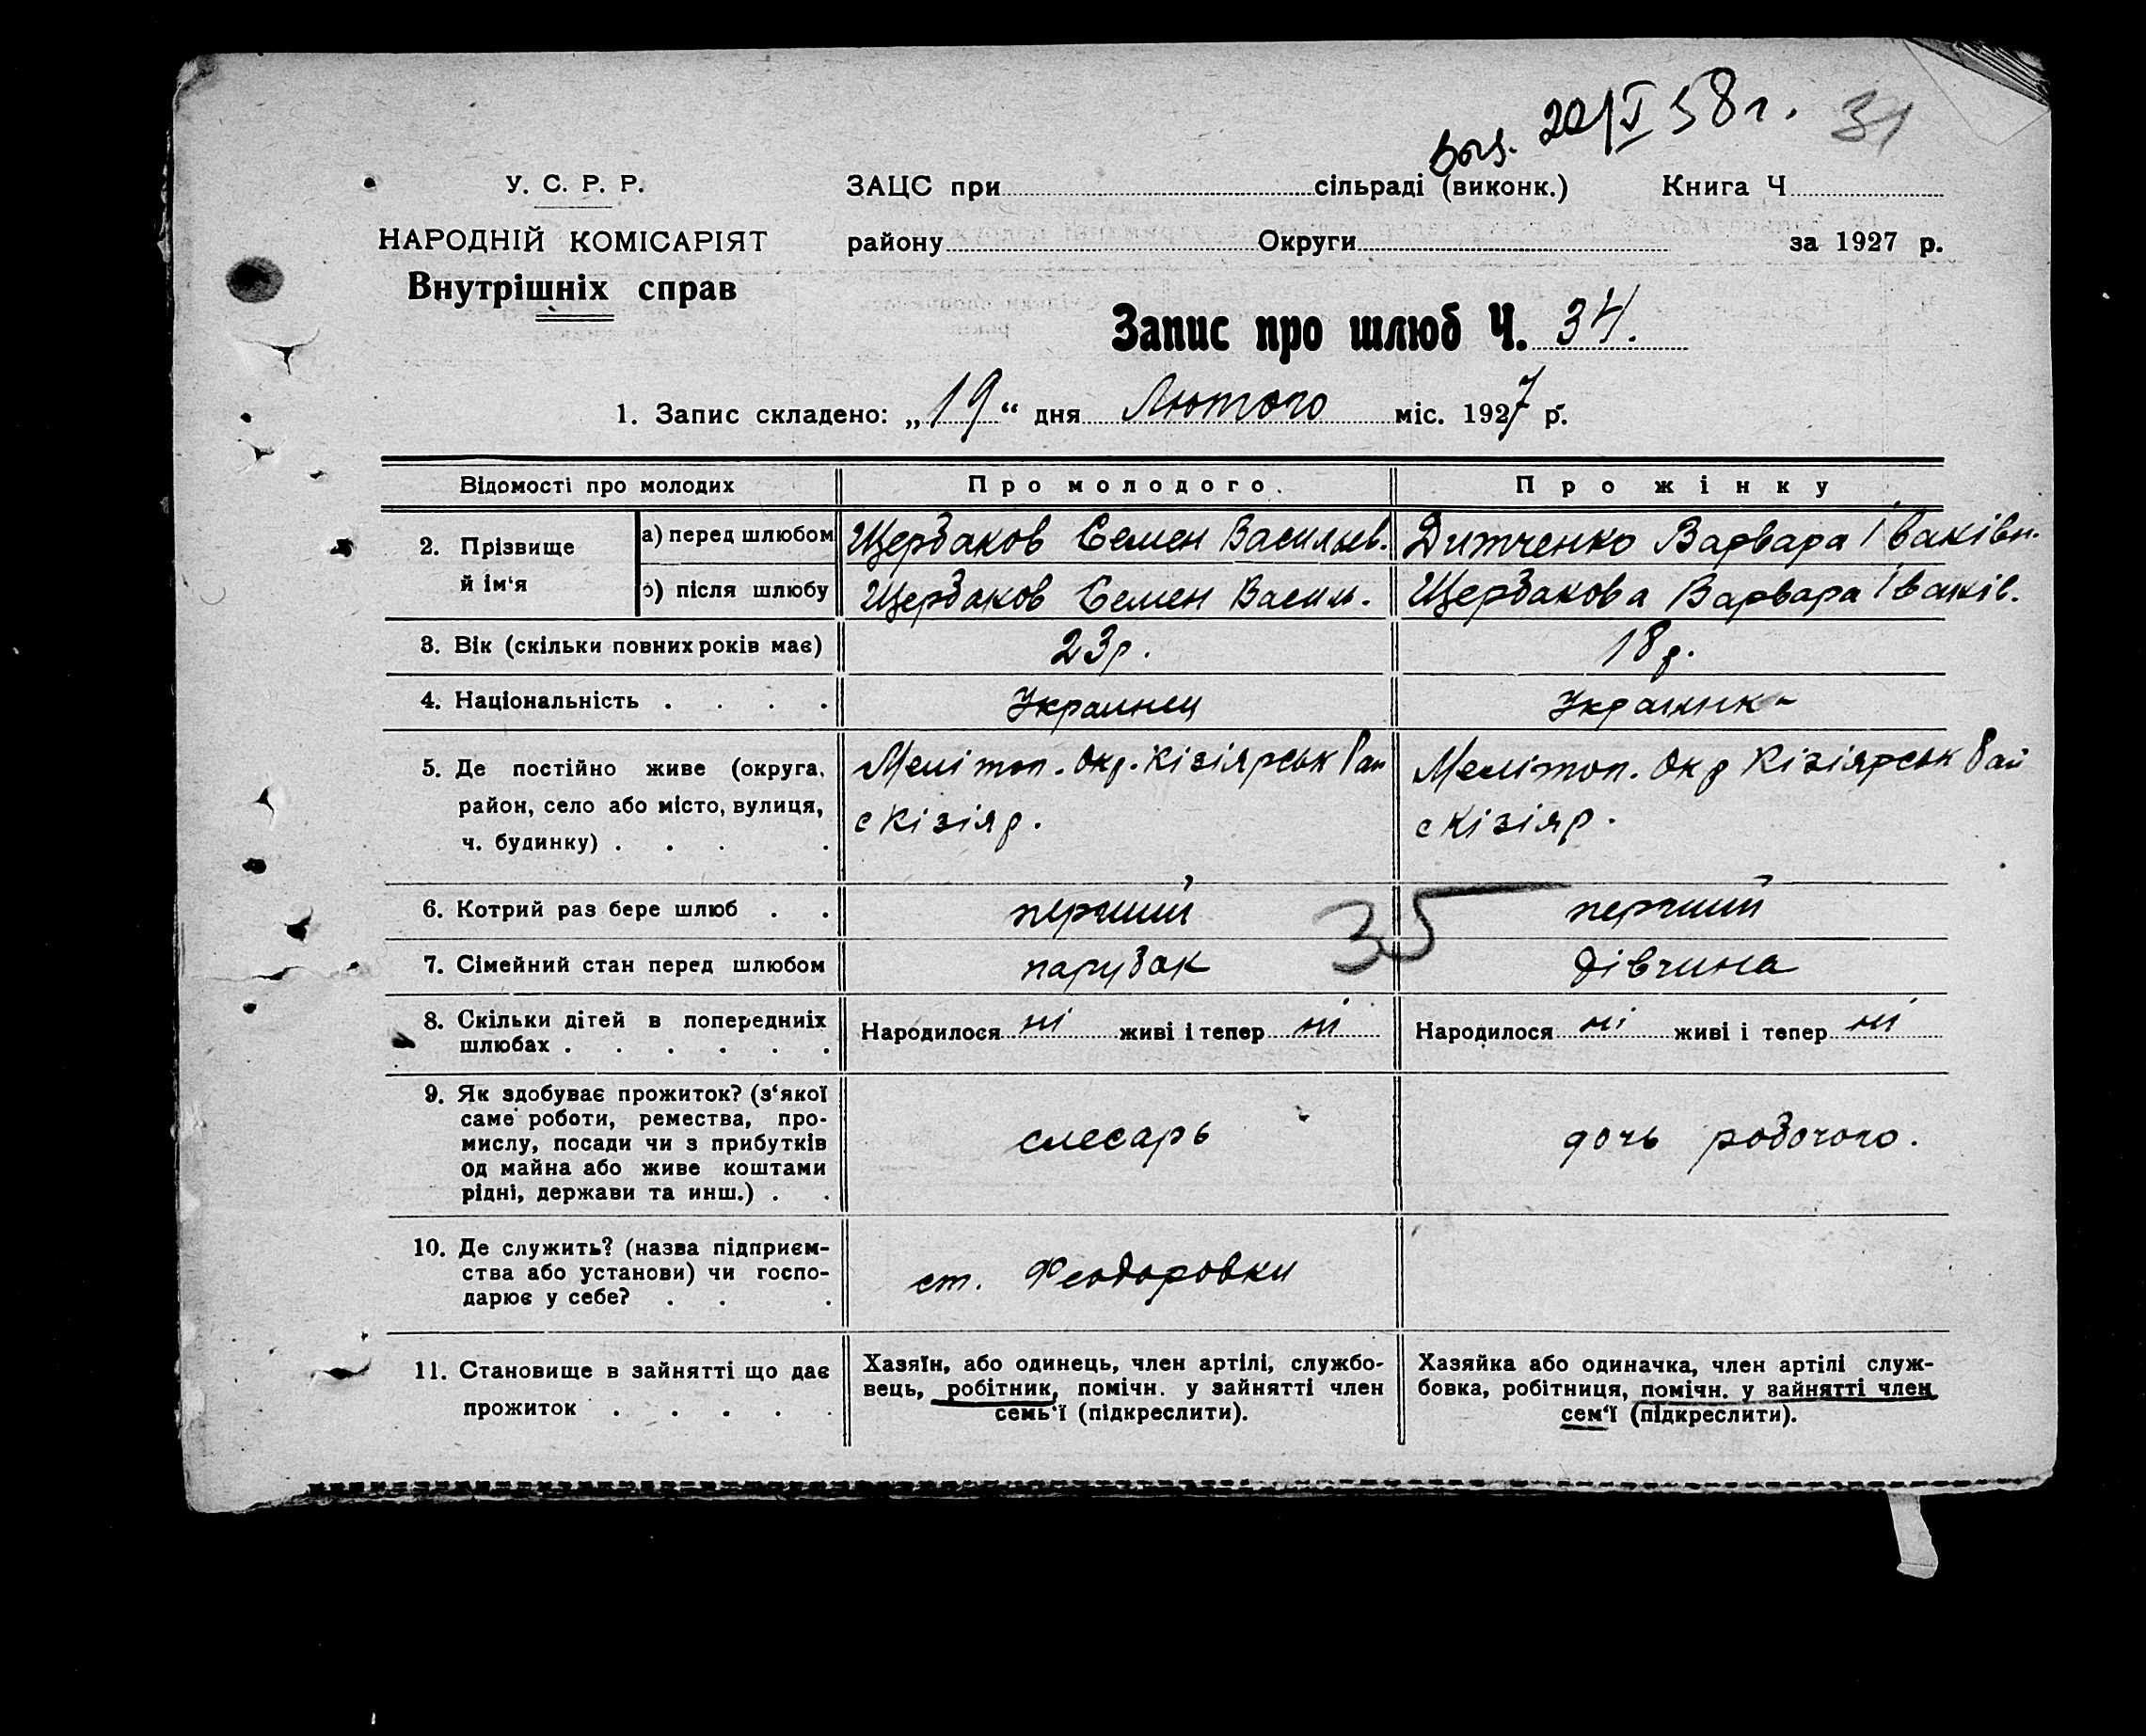 выд. 20/I 58 г. 31
У. С. Р. Р. ЗАЦС при сільраді (виконк.) Книга Ч
НАРОДНІЙ КОМІСАРІЯТ району Округи за 1927 р.
Внутрішніх справ
Запис про шлюб Ч. 34.
1. Запис складено: „19“ дня Лютого міс. 1927 р.
Відомості про молодих Про молодого. Про жінку
2. Прізвище й ім‘я
а) перед шлюбом Щербаков Семен Васильев. Дитченко Варвара
б) після шлюбу Щербаков Семен Васил. Щербакова Варвара
3. Вік (скільки повних років має) 23 р. 18 р.
4. Національність . . . . Украинец Украинка
5. Де постійно живе (округа, Мелітоп. Окр. Кізіярськ Рай Мелітоп. Окр Кізіярськ Рай
район, село або місто, вулиця, с Кізіяр. с Кізіяр.
ч. будинку) . . . .
6. Котрий раз бере шлюб . . перший 35 перший
7. Сімейний стан перед шлюбом парубак дівчина
8. Скільки дітей в попередниіх Народилося ні живі і тепер ні Народилося ні живі і тепер ні
шлюбах . . . . . .
9. Як здобуває прожиток? (з‘якої
саме роботи, ремества, про-
мислу, посади чи з прибутків слесарь дочь робочого.
од майна або живе коштами
рідні, держави та инш.) . .
10. Де служить? (назва підприєм-
ства або установи) чи госпо- ст. Феодоровки
дарює у себе? . . .
11. Становище в зайнятті що дає
прожиток . . . . .
Хазяїн, або одинець, член артілі, службо-
вець, робітник, помічн. у зайнятті член
семь‘ї (підкреслити).
Хазяйка або одиначка, член артілі служ-
бовка, робітниця, помічн. у зайнятті член
сем‘ї (підкреслити).